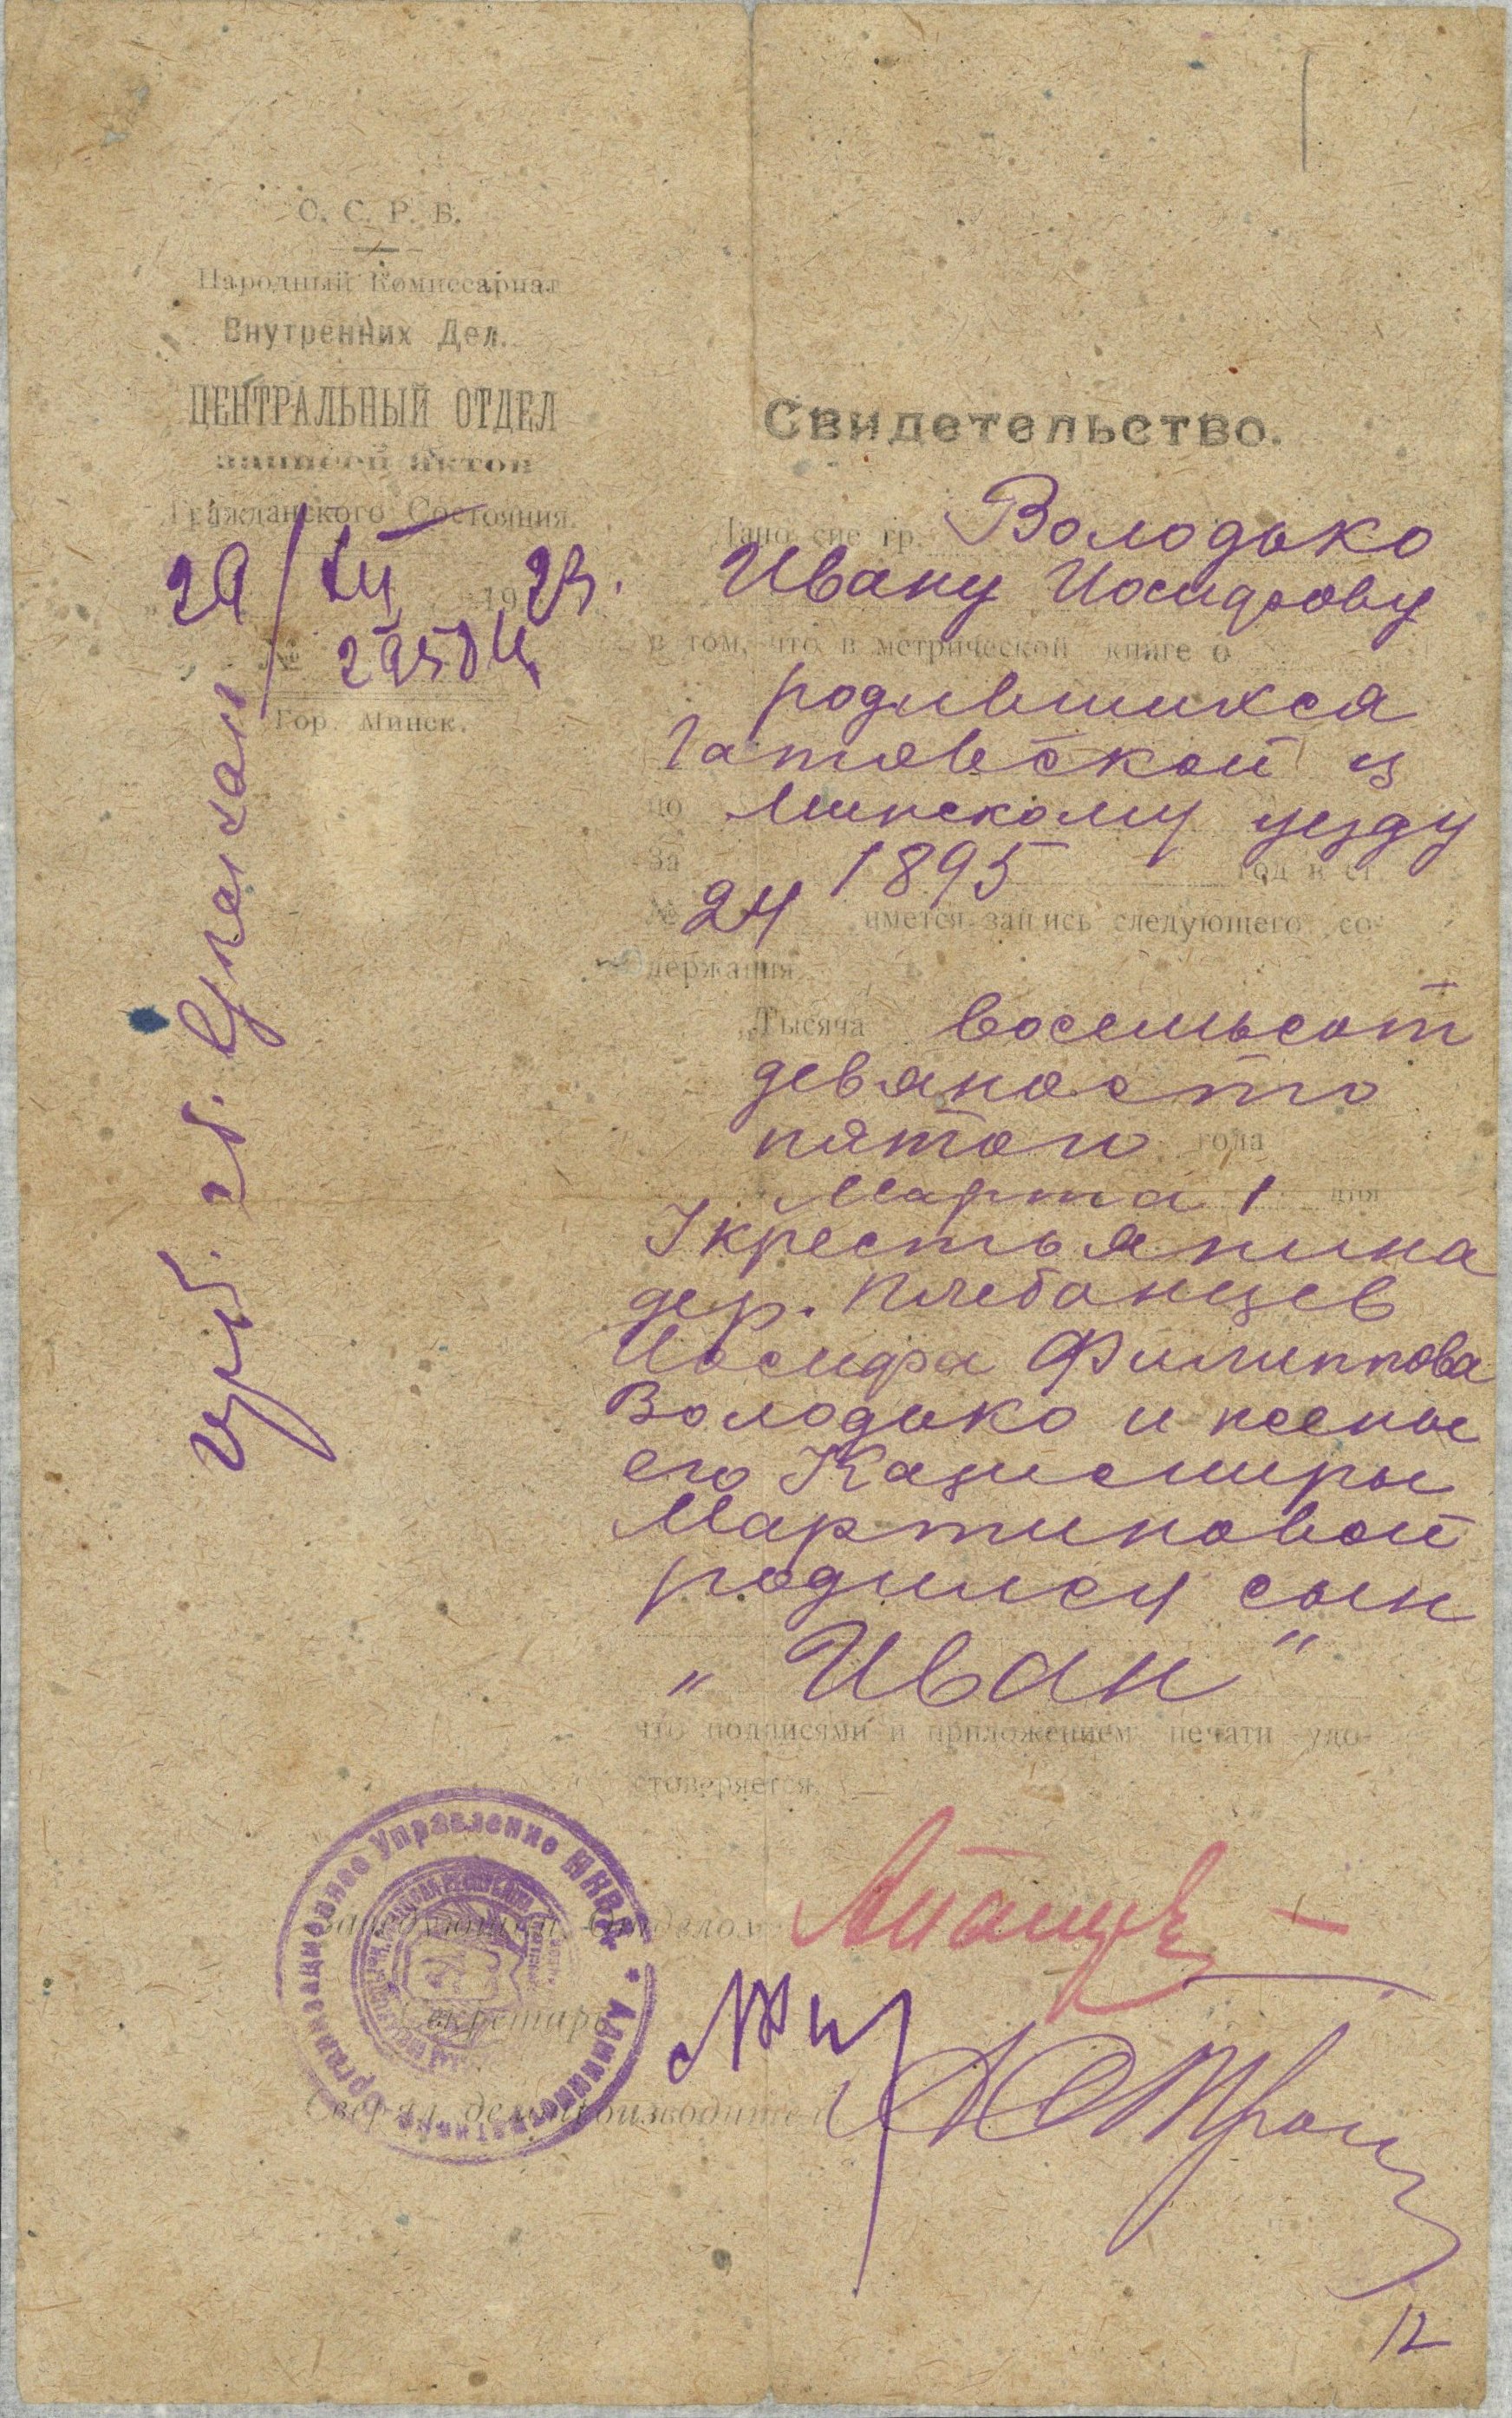 С. С. Р. Б.
Народный Комиссариат
Внутренних Дел.
ЦЕНТРАЛЬНЫЙ ОТДЕЛ
записей актов
Гражданского Состояния.
29/XII 1923.
№
Гор. Минск.
Свидетельство.
Дано сие гр. Володько
Ивану Иосифову
в том, что в метрической книге о
родившихся
Гатовской ц
по Минскому уезду
За 1895 год в ст.
№ 24 имется запись следующего со-
держания
„Тысяча восемьсот
девяносто
пятого года
Марта 1 дня
У крестьянина
дер. Плебанцев
Иосифа Филиппова
Володько и жены
его Казимиры
Мартиновой
родился сын
„Иван"
что подписями и приложением печати удо-
стоверяется.
Заведующий Отделом
Секретарь
Сверял делопроизводител
Организационное Управление НКВД * Административно
12